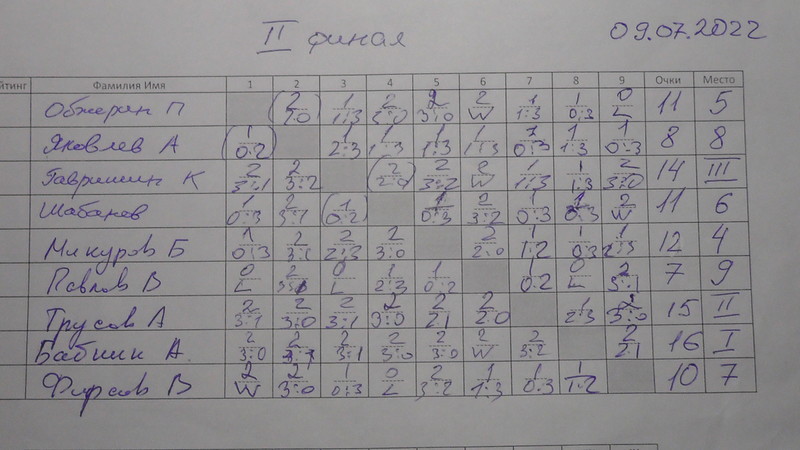 II финал 09.07.2022
йтинг Фамилия Имя 1 2 3 4 5 6 7 8 9 Очки Место
Обжерин П 2 2:0 1 1:3 2 3:0 2 3:0 2 W 1 1:3 1 0:3 0 L 11 5
Яковлев А 1 0:2 1 2:3 1 1:3 1 1:3 1 1:3 1 0:3 1 1:3 1 0:3 8 8
Гавришин К 2 3:1 2 3:2 2 2:0 2 3:2 2 W 1 1:3 1 1:3 2 3:0 14 III
Шабанов 1 0:3 2 3:1 1 0:2 1 0:3 2 3:2 1 0:3 1 0:3 2 W 11 6
Б 1 0:3 2 3:1 2 2:3 2 3:0 2 2:0 1 1:2 1 0:3 12 4
Павлов В 0 L 2 0 L 1 2:3 1 0:2 0:2 0 L 2 3:1 7 9
Трусов А 2 3:1 2 3:0 2 3:1 2 3:0 2 2:1 2 2:0 1 2:3 2 3:0 15 II
Бабкин А. 2 3:0 2 2 3:1 2 3:0 2 3:0 2 W 2 3:2 2 2:1 16 I
Фирсов В 2 W 2 3:0 1 0:3 0 L 2 3:2 1 1:3 1 0:3 1 1:2 10 7